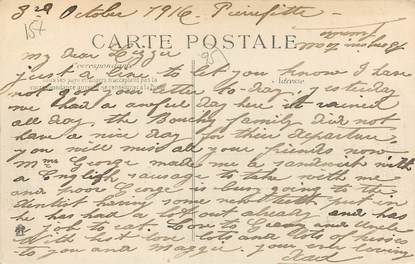 3rd October 1916 Pierrefitte -
157
CARTE POSTALE
95
Correspondance
Adresse
My dear Lizzie
just a line to let you know I have
not got a letter to-day, yesterday
we had a awful day here it rained
all day, the Bouchy family did not
have a nice day for their departure,
you will miss all your friends now
Mme George made me a sandwich with
a English sausage to take with me
and poor George is busy going to the
dentist having some new teeth put in
he has had a lot out already and has
a job to eat. Love to Granny and Uncle
With best love lots and lots of kisses
to you and Maggie. your ever loving
Dad